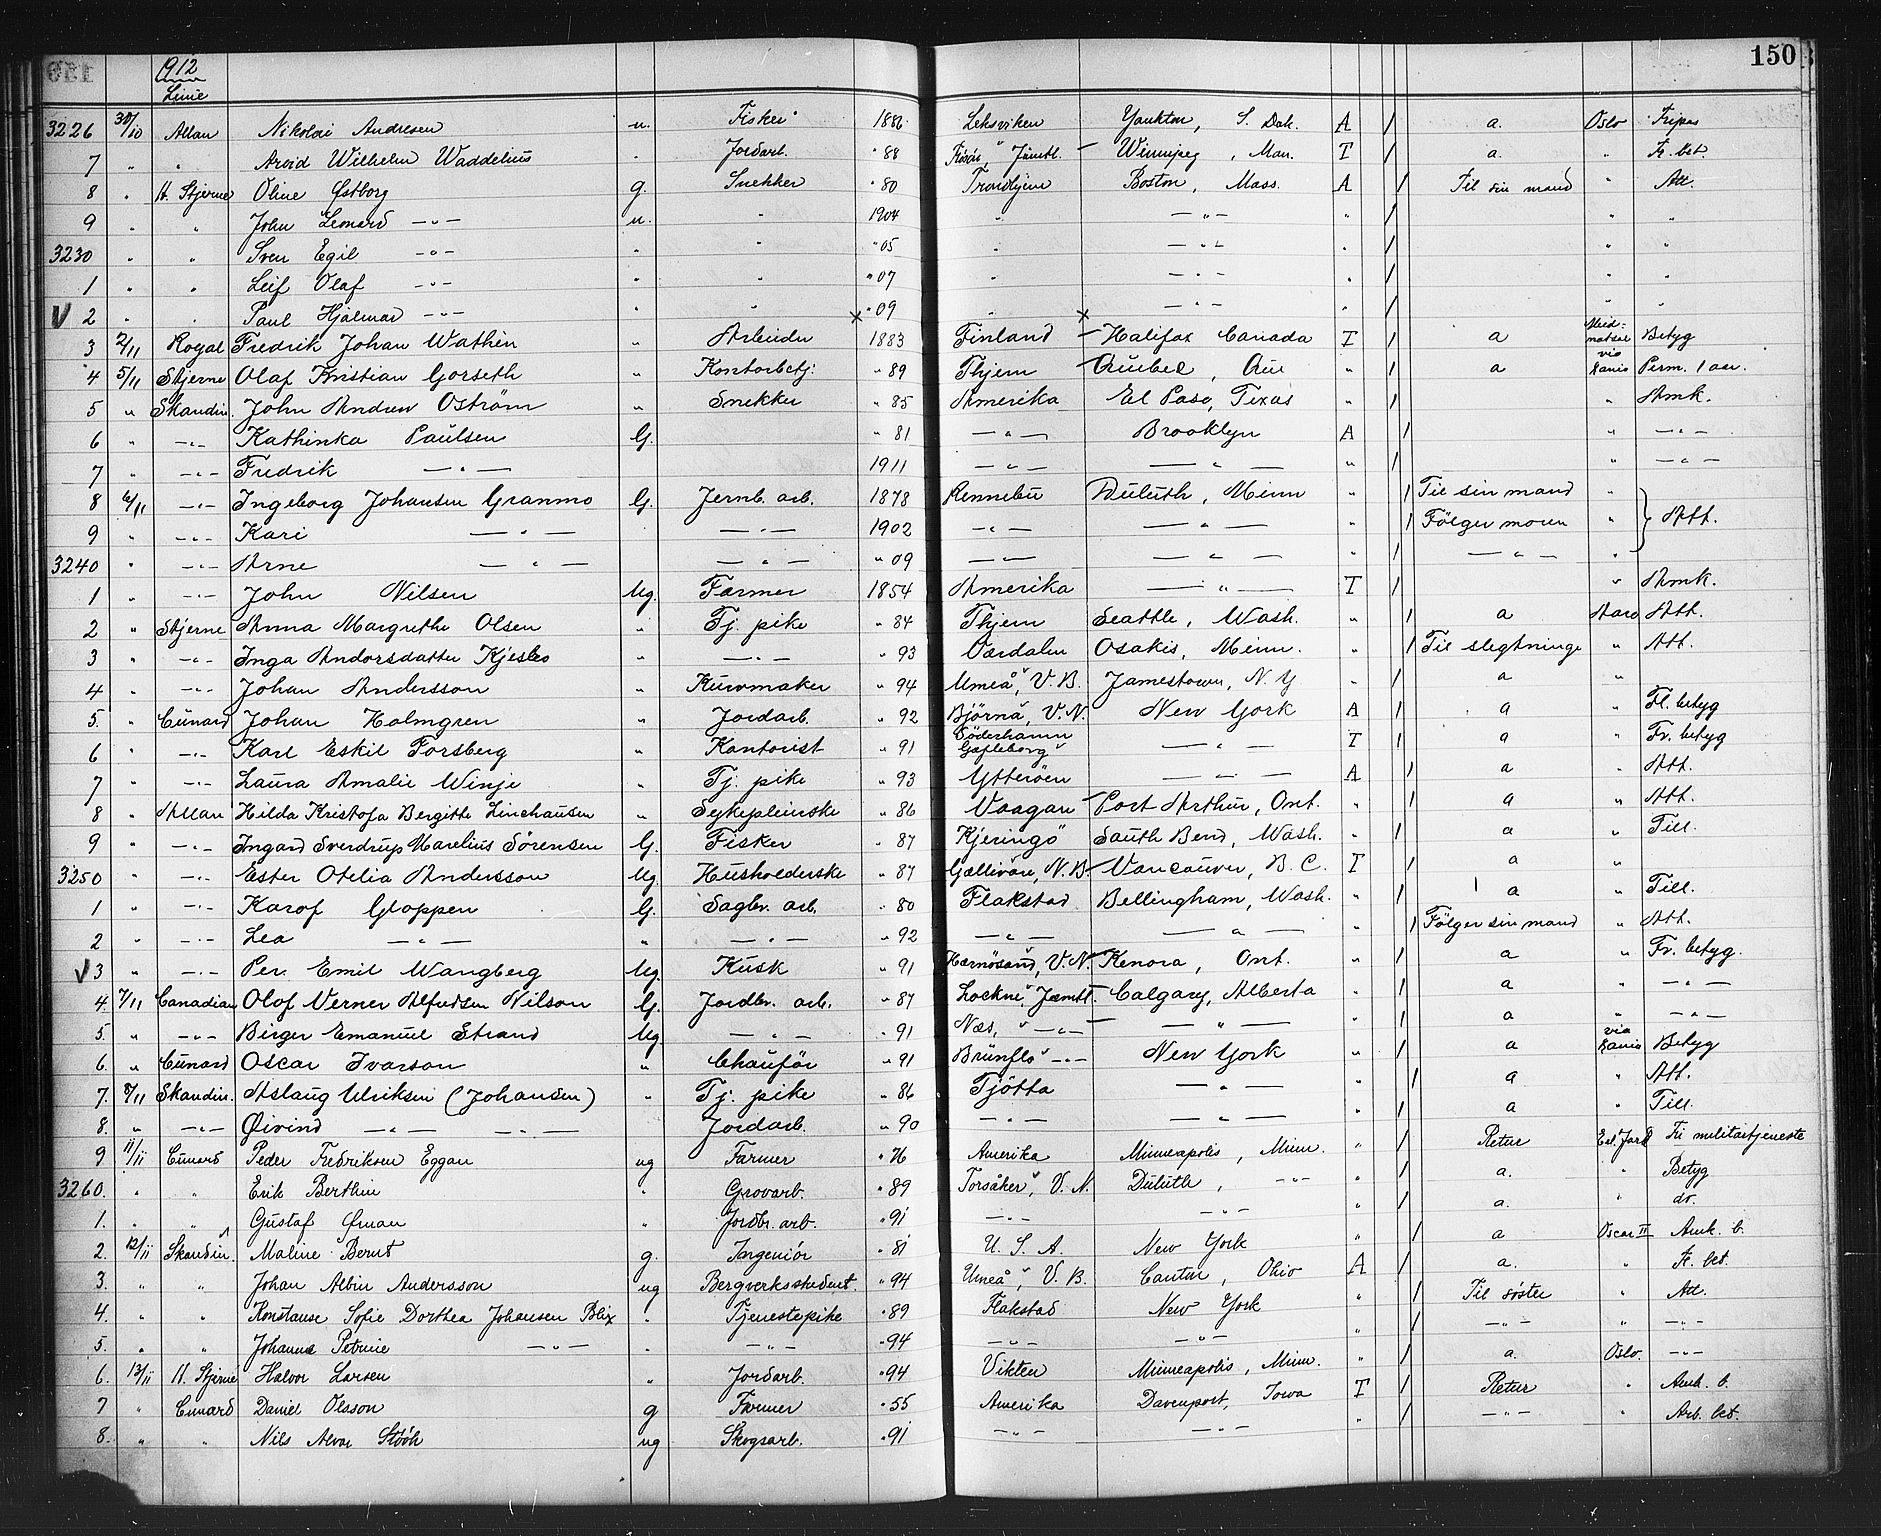 150
1912
Linie
3226 30/10 Allan Nikolai Andresen u. Fisker 1886 Leksviken Yankton, S. Dak. A / a. Oslo Fripas
7 " " Arvid Wilhelm Waddelius " Jordarb. " 88 Frösö, Jämtl. – Winnipeg, Man. T / a. " Fr. bet.
8 " H. Stjerne Oline Østborg g. Snekker " 80 Trondhjem Boston, Mass. A / Til sin mand " Att.
9 " " John Leonard —"— u. " 1904 " —"— " / " "
3230 " " Sven Egil —"— " " " 05 " —"— " / " "
1 " " Leif Olaf —"— " " " 07 " —"— " / " "
V 2 " " Paul Hjalmar —"— " " × " 09 " × —"— " / " "
3 2/11 Royal Fredrik Johan Wathén " Arbeider 1883 Finland – Halifax Canada T / a Betyg
4 5/11 Stjerne Olaf Kristian Gorseth " Kontorbetj. " 89 Thjem – Quebec, Que " / a via Perm. 1 aar.
5 " Skandin. John Andrew Oström " Snekker " 85 Amerika El Paso, Texas " / " Amk.
6 " —"— Kathinka Paulsen G. " 81 —"— Brooklyn A / " —"—
7 " —"— Fredrik —"— 1911 —"— —"— " / " —"—
8 6/11 —"— Ingeborg Johansen Granmo G. Jernb. arb. 1878 Rennebu Duluth, Minn " / Til sin mand "
9 " —"— Kari —"— —"— 1902 —"— —"— " / Fölger moren " } Att.
3240 " —"— Arne —"— —"— " 09 —"— —"— " / —"— "
1 " —"— John Nilsen Ug. Farmer 1854 Amerika —"— T / " Amk.
2 " Stjerne Anna Margrethe Olsen " Tj. pike " 84 Thjem Seattle, Wash. " / a Aaro Att.
3 " —"— Inga Andorsdatter Kjesbo " —"— " 93 Værdalen Osakis, Minn. " / Til slegtninge " Att.
4 " —"— Johan Andersson " Kurvmaker " 94 Umeå, V. B. Jamestown, N. Y " / a "
5. " Cunard Johan Holmgren " Jordarb. " 92 Björnå, V. N. New York A / a " Fl. betyg
6 " —"— Karl Eskil Forsberg " Kontorist " 91 Söderhamn Gefleborg —"— T / a " Fr. betyg
7 " —"— Laura Amalie Winje " Tj. pike " 93 Ytterøen —"— A / a " Att.
8 " Allan Hilda Kristofa Bergitte Linchausen " Sykepleierske " 86 Vaagan – Port Arthur, Ont. " / a " Att.
9 " —"— Ingard Sverdrup Marelius Sörensen G. Fisker " 87 Kjeringö South Bend, Wash. " / a " Till.
3250 " —"— Ester Otelia Andersson Ug. Husholderske " 87 Gellivare, N. B – Vancouver, B. C. T / a "
1 " —"— Karof Gloppen G. Sagbr. arb. " 80 Flakstad Bellingham, Wash. " / a " Till.
2 " —"— Lea —"— " —"— " 92 —"— —"— " / Fölger sin mand " Att.
V 3 " —"— Per Emil Wangberg Ug. Kusk " 91 Hernösand, V. N. Kenora, Ont. " / a " Fr. betyg.
4. 7/11 Canadian Olof Verner Alfredsen Nilson G. Jordbr. arb. " 87 Lockne, Jæmtl. – Calgary, Alberta " / a " —"—
5. " —"— Birger Emanuel Strand Ug —"— " 91 Næs, —"— – —"— " / a " —"—
6. " Cunard Oscar Ivarson " Chauför " 91 Brunflo —"— New York " / a via Betyg
7. 8/11 Skandin. Aslaug Ulriksen (Johansen) " Tj. pike " 86 Tjötta —"— " / a " Att.
8. " —"— Øivind —"— —"— Jordarb. " 90 —"— —"— " / a " Till.
9 11/11 Cunard Peder Fredriksen Eggan ug Farmer " 76 Amerika Minneapolis, Minn. " / Retur Fri militærtjeneste
3260. " " Erik Berthin " Grovarb. " 89 Torsåker, V. N. Duluth, —"— " / a. " Betyg
1. " " Gustaf Öman " Jordbr. arb. " 91 —"— —"— " / a. " do.
2. 12/11 Skandin. Maline Bernt g. Ingeniør " 81 U. S. A. New York " / a Oscar II Amk. b.
3. " " Johan Albin Andersson ug Bergverksstudent. " 94 Umeå, V. B. Canton, Ohio A / a. " Fr. bet.
4. " " Konstanse Sofie Dorthea Johansen Blix " Tjenestepike " 89 Flakstad New York " / Til søster " Att.
5. " " Johanna Petrine —"— " —"— " 94 —"— —"— " / —"— " —"—
6. 13/11 H. Stjerne Halvor Larsen " Jordarb. " 94 Vikten Minneapolis, Minn. " / a. Oslo. —"—
7 " Cunard Daniel Olsson g Farmer " 55 Amerika Davenport, Iowa T / Retur " Amk. b.
8. " " Nils Alvar Stööh ug Skogsarb. " 91 —"— —"— " / —"— " Arb. bet.